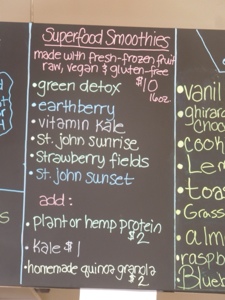 Superfood Smoothies
made with fresh-frozen fruit
raw, vegan & gluten-free
$10
16oz
• green detox
• earthberry
• vitamin kale
• st. john sunrise
• strawberry fields
• st. john sunset
add:
• plant or hemp protein
$2
• kale $1
• homemade quinoa granola
$2
• vanil
• ghirard
choco
• cook
Lem
• toas
• Grass
• alm
• raspb
Blueb